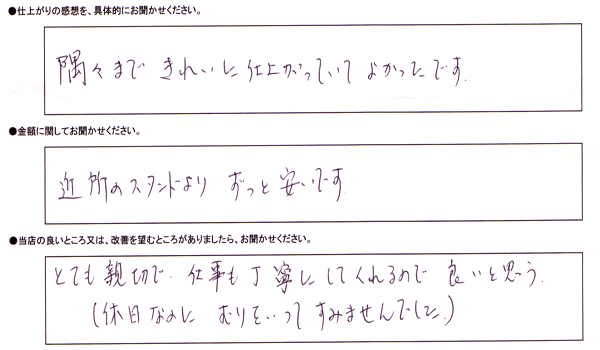 ●仕上がりの感想を、具体的にお聞かせください。
隅々まで きれいに仕上がっていて よかったです.
●金額に関してお聞かせください。
近所のスタンドより ずっと安いです
●当店の良いところ又は、改善を望むところがありましたら、お聞かせください。
とても親切で、仕事も丁寧にしてくれるので 良いと思う.
(休日なのに むりをいって すみませんでした.)